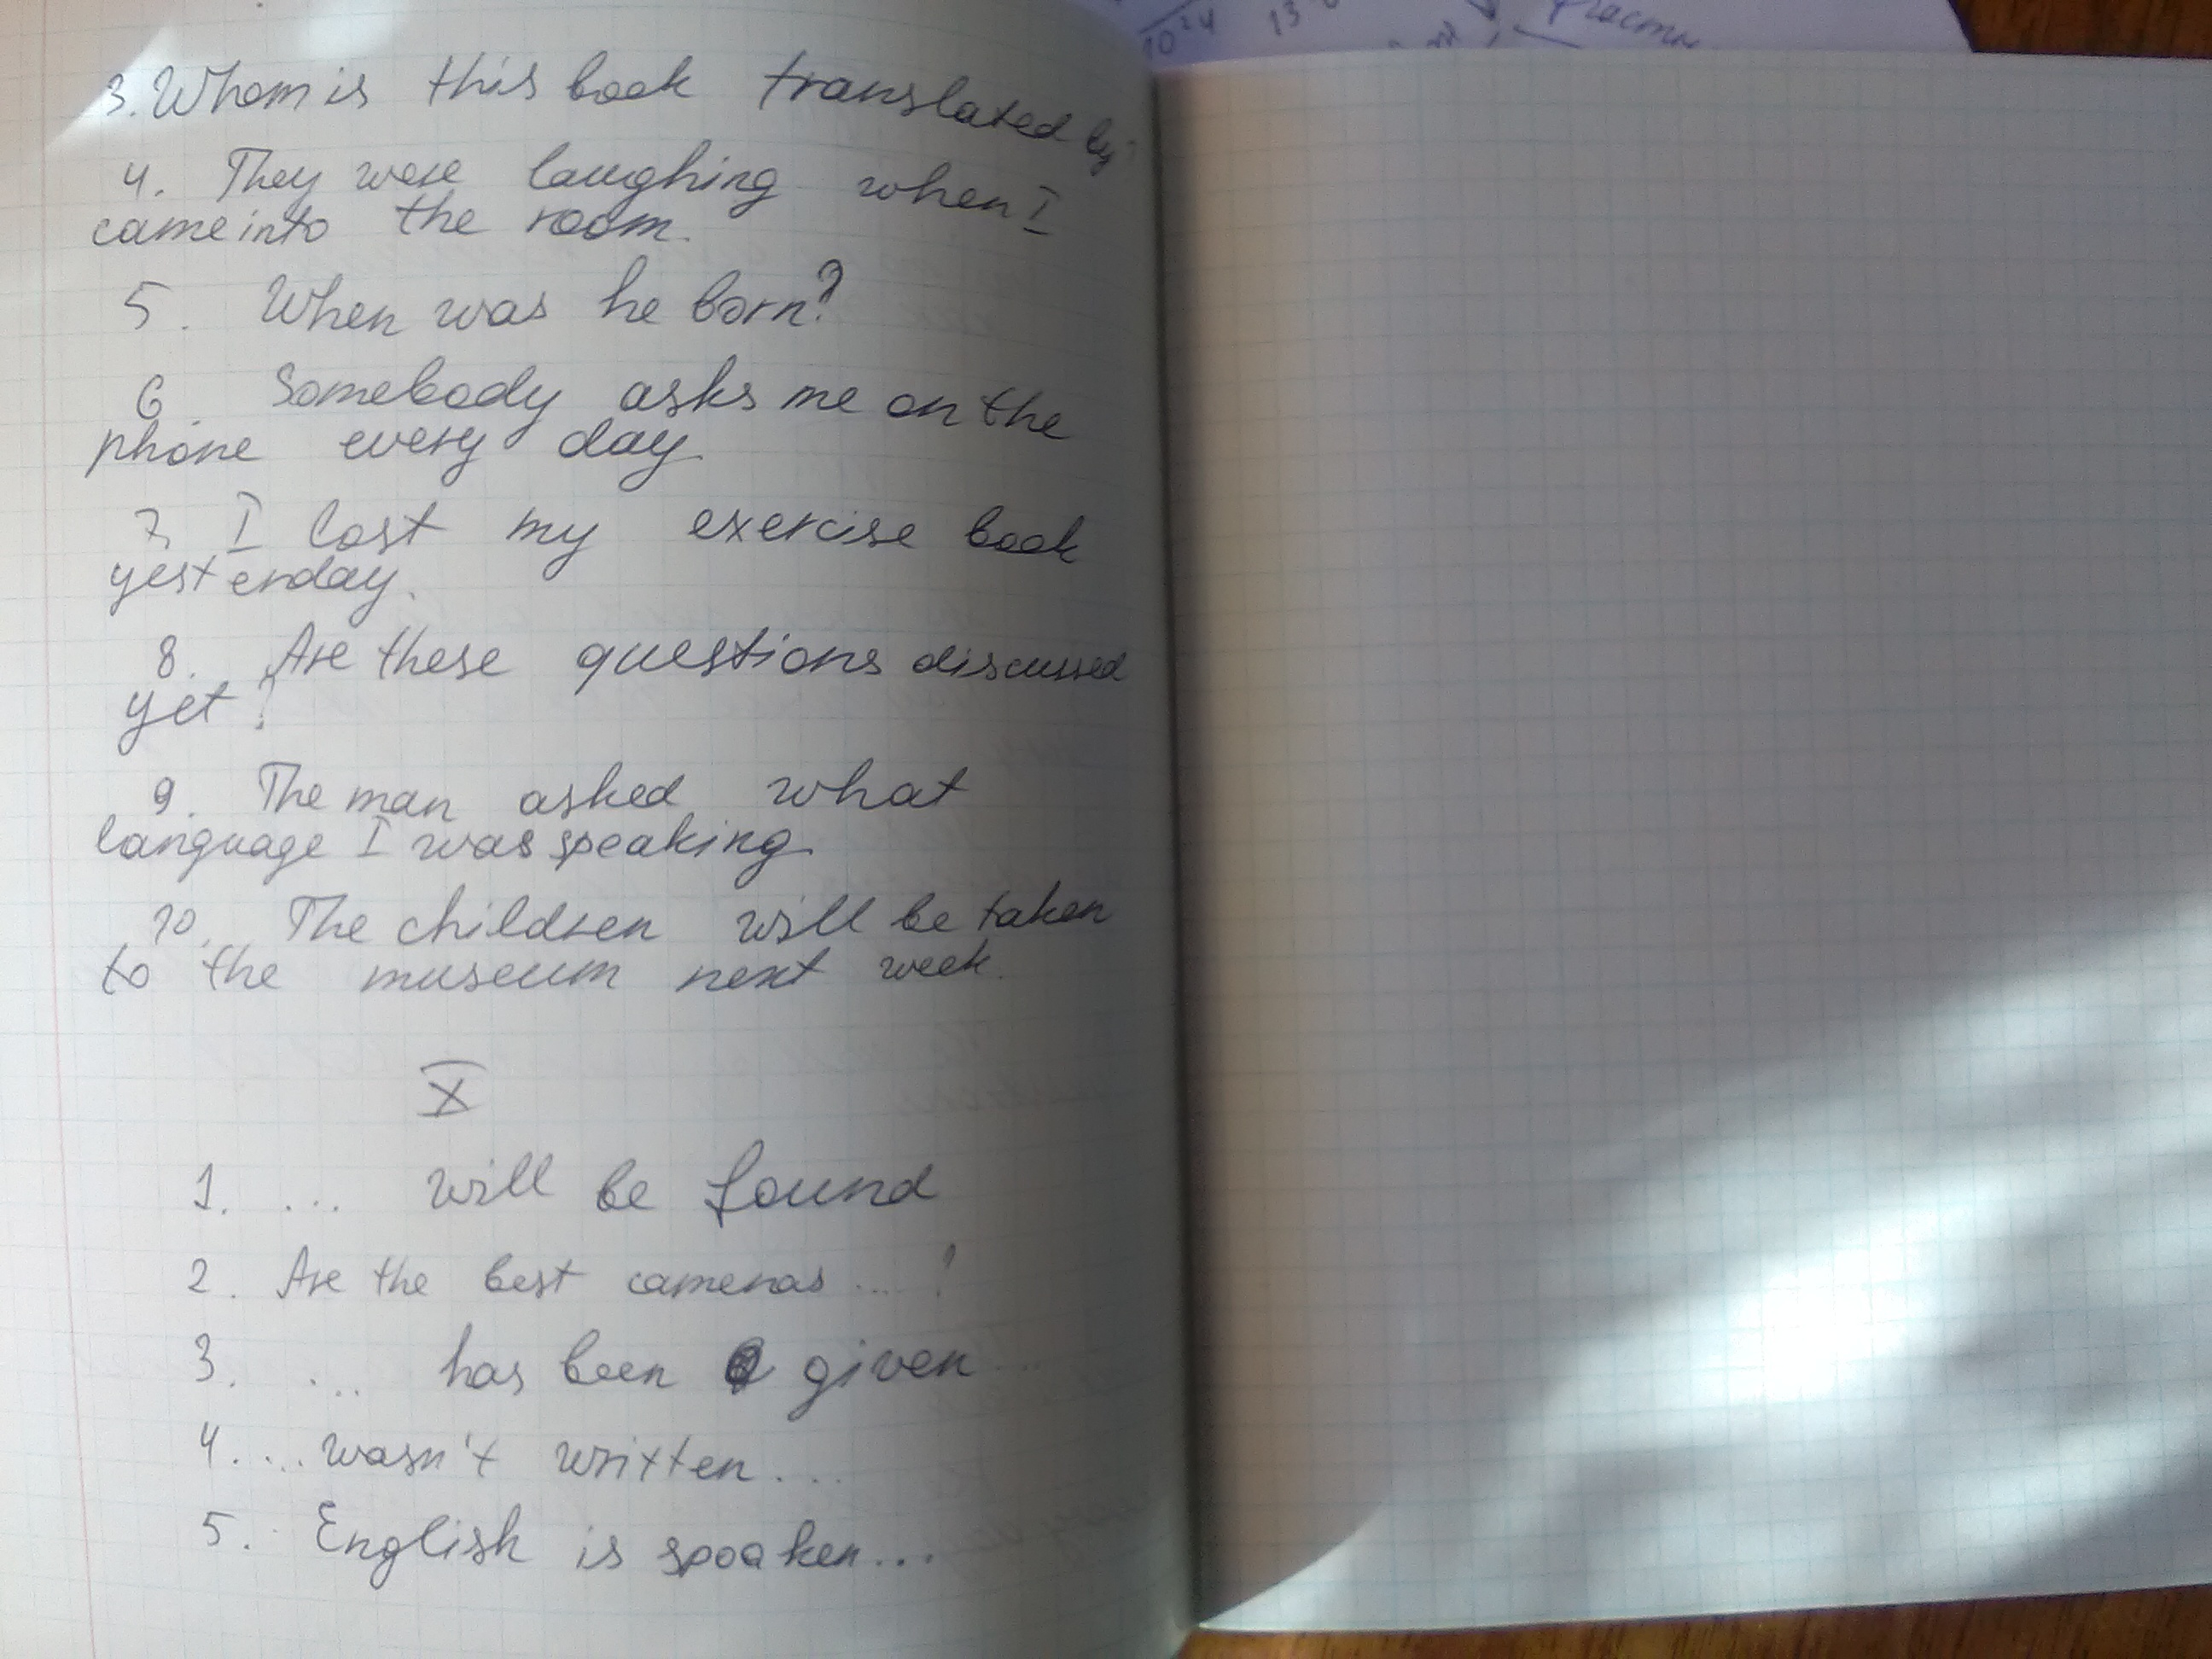 10²⁴ 13
3. Whom is this book translated by
4. They were laughing when I
came into the room.
5. When was he born?
6. Somebody asks me on the
phone every day.
7. I lost my exercise book
yesterday.
8. Are these questions discussed
yet?
9. The man asked what
language I was speaking.
10. The children will be taken
to the museum next week.
X
1. ... will be found
2. Are the best cameras ... ?
3. ... has been given ...
4. ... wasn't written ...
5. English is spoaken...